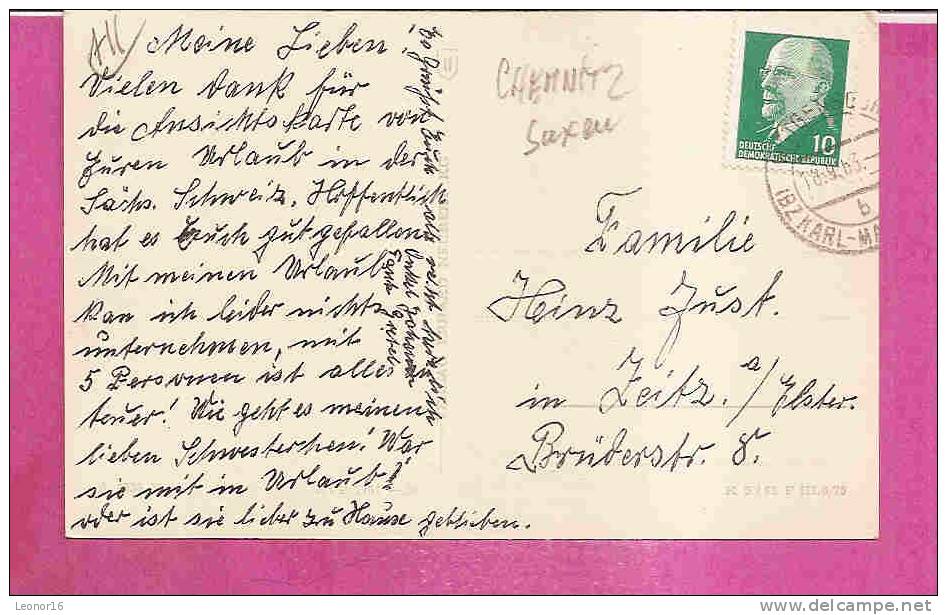 Meine Lieben!
Vielen Dank für
die Ansichtskarte von
Euren Urlaub in der
Sächs. Schweiz. Hoffentlich
hat es Euch gut gefallen.
Mit meinen Urlaub
kan ich leider nichts
unternehmen, mit
5 Personen ist alles
teuer! Wie geht es meinen
lieben Schwesterchen! War
sie mit in Urlaub?
oder ist sie lieber zu Hause geblieben.
Es grüßt Euch alle
Onkel Johannes
Tante Gretel
CHEMNITZ
Saxen
10
DEUTSCHE
DEMOKRATISCHE REPUBLIK
18.9.63.
b
(BZ. KARL-MA
Familie
Heinz Just.
in Zeitz. a/Elster.
Brüderstr. 8.
Leonor16
http://www.delcampe.net